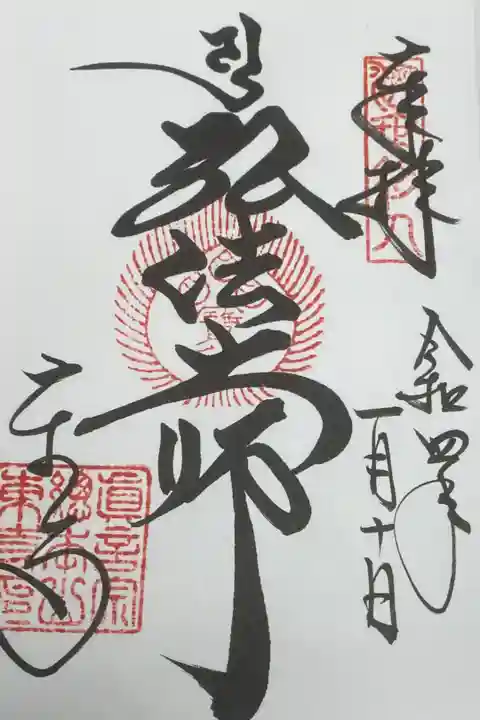 奉拝
令和四年
一月十日
弘法大師
東寺
眞言宗
總本山
東寺印